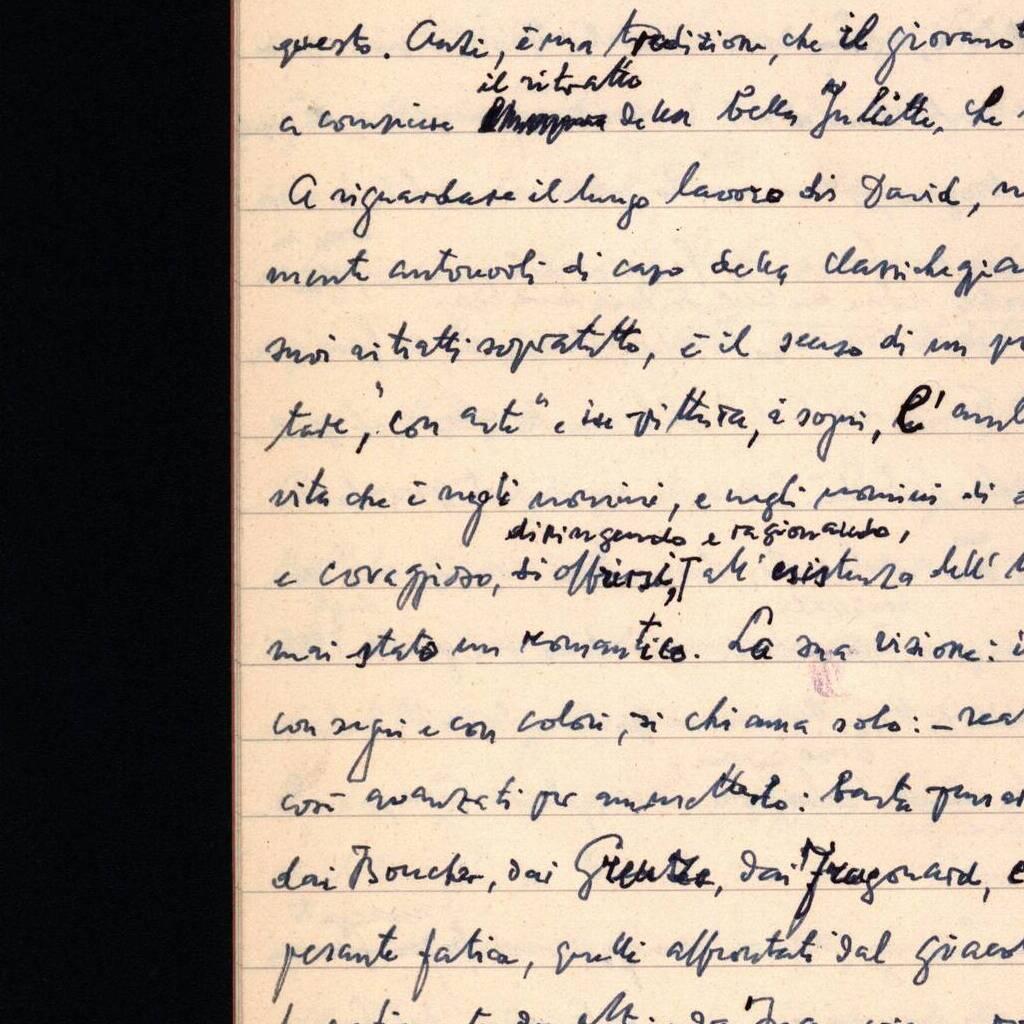 questo. Anzi, è una tradizione, che il giovane
il ritratto
a compiere della bella Juliette, che
A riguardare il lungo lavoro di David,
mente autorevoli di capo della classicheggia
suoi ritratti sopratutto, è il senso di un
tare, "con arte" e in pittura, i sogni, l'
vita che è negli uomini, e negli uomini di
dipingendo e ragionando,
e coraggioso, di offrirsi, all'esistenza dell'
mai stato un romantico. La sua visione:
con segni e con colori, si chiama solo: – rea
così avanzati per ammetterlo: basta pensar
dai Boucher, dai Greuze, dai Fragonard, e
pesante fatica, quelli affrontati dal giaco